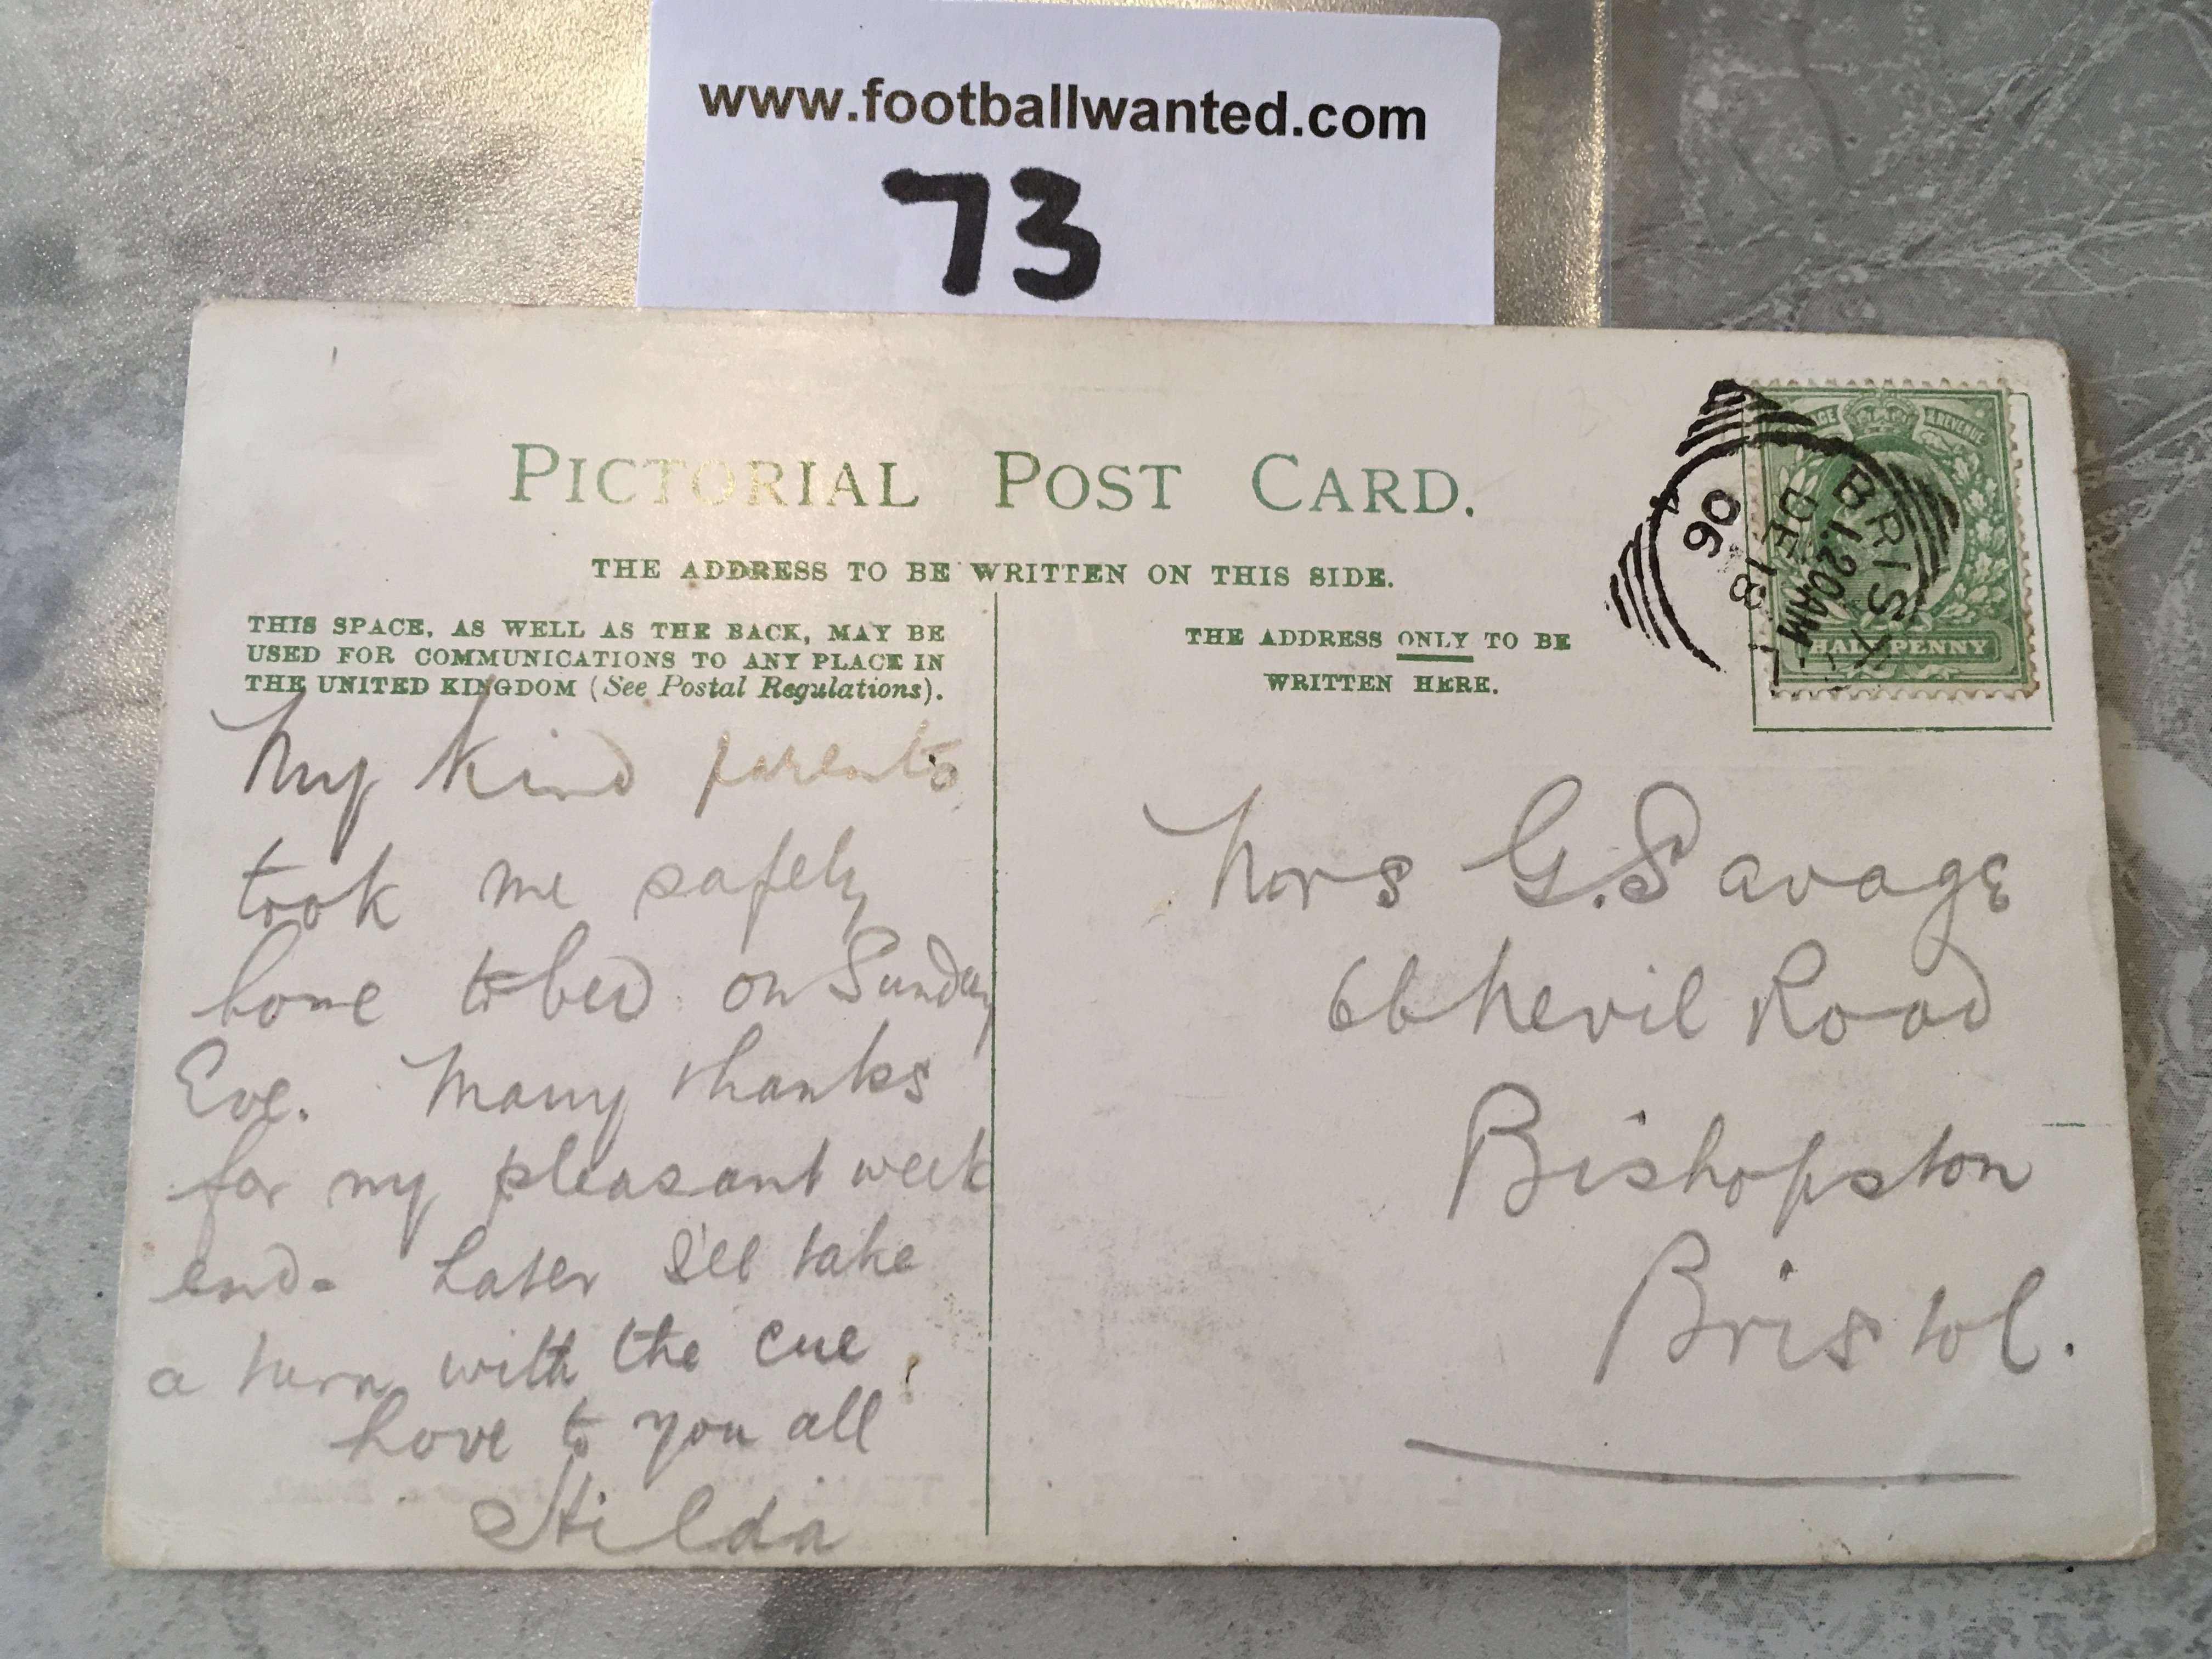 www.footballwanted.com
73
PICTORIAL POST CARD.
THE ADDRESS TO BE WRITTEN ON THIS SIDE.
THIS SPACE, AS WELL AS THE BACK, MAY BE
USED FOR COMMUNICATIONS TO ANY PLACE IN
THE UNITED KINGDOM (See Postal Regulations).
My kind parents
took me safely
home to bed on Sunday
Eve. Many thanks
for my pleasant week
end. Later I'll take
a turn with the cue
Love to you all
Hilda
THE ADDRESS ONLY TO BE
WRITTEN HERE.
Mrs G. Savage
66 Nevil Road
Bishopston
Bristol.
REVENUE
HALFPENNY
BRISTOL
1.20AM
DE 18
06